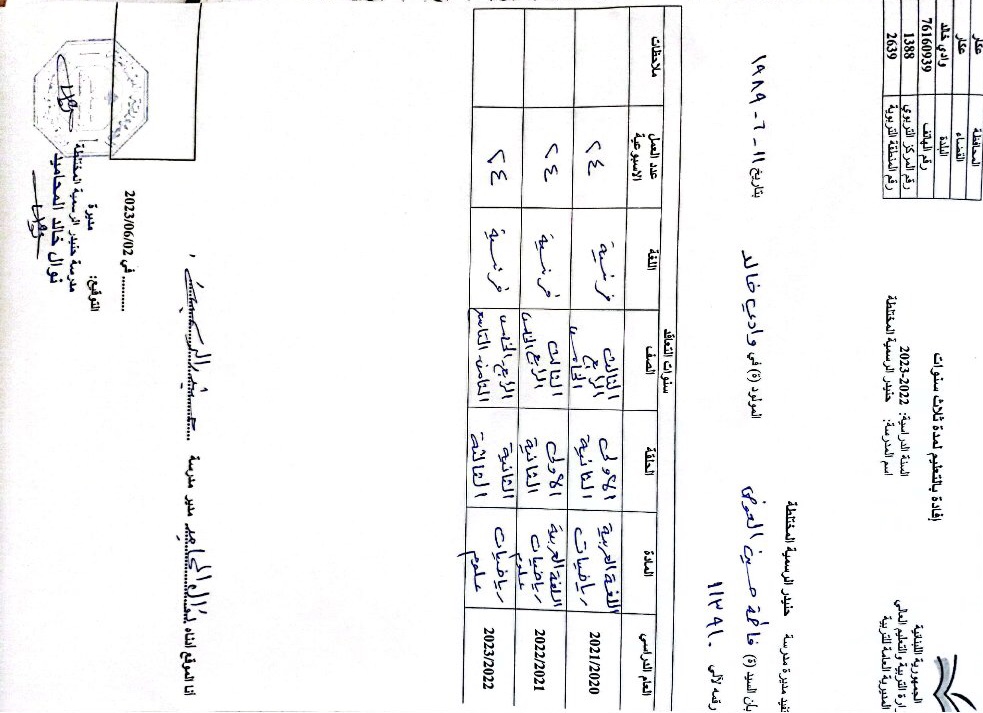 الجمهورية اللبنانية
وزارة التربية والتعليم العالي
المديرية العامة للتربية
المحافظة عكار
القضاء عكار
البلدة وادي خالد
رقم الهاتف 76160939
رقم المركز التربوي 1388
رقم المنطقة التربوية 2639
إفادة بالتعليم لمدة ثلاث سنوات
السنة الدراسية: 2022-2023
اسم المدرسة: حنيدر الرسمية المختلطة
تفيد مديرة مدرسة حنيدر الرسمية المختلطة
بان السيد (ة) فاطمة حسين العوض المولود (ة) في وادي خالد بتاريخ ١١-٦-١٩٨٩
رقمه الآلي ١١٣٩١٠
سنوات التعاقد
العام الدراسي المادة الحلقة الصف اللغة عدد العمل الاسبوعية ملاحظات
2021/2020 اللغة العربية رياضيات الاولى الثانية الثالث الرابع الخامس فرنسية ٢٤
2022/2021 اللغة العربية رياضيات علوم الاولى الثانية الثالث الرابع الخامس فرنسية ٢٤
2023/2022 رياضيات علوم الثانية الثالثة الرابع الخامس الثامن التاسع فرنسية ٢٤
أنا الموقع ادناه نوال المحاميد مدير مدرسة
في 2023/06/02
التوقيع:
مديرة
مدرسة حنيدر الرسمية المختلطة
نوال خالد المحاميد